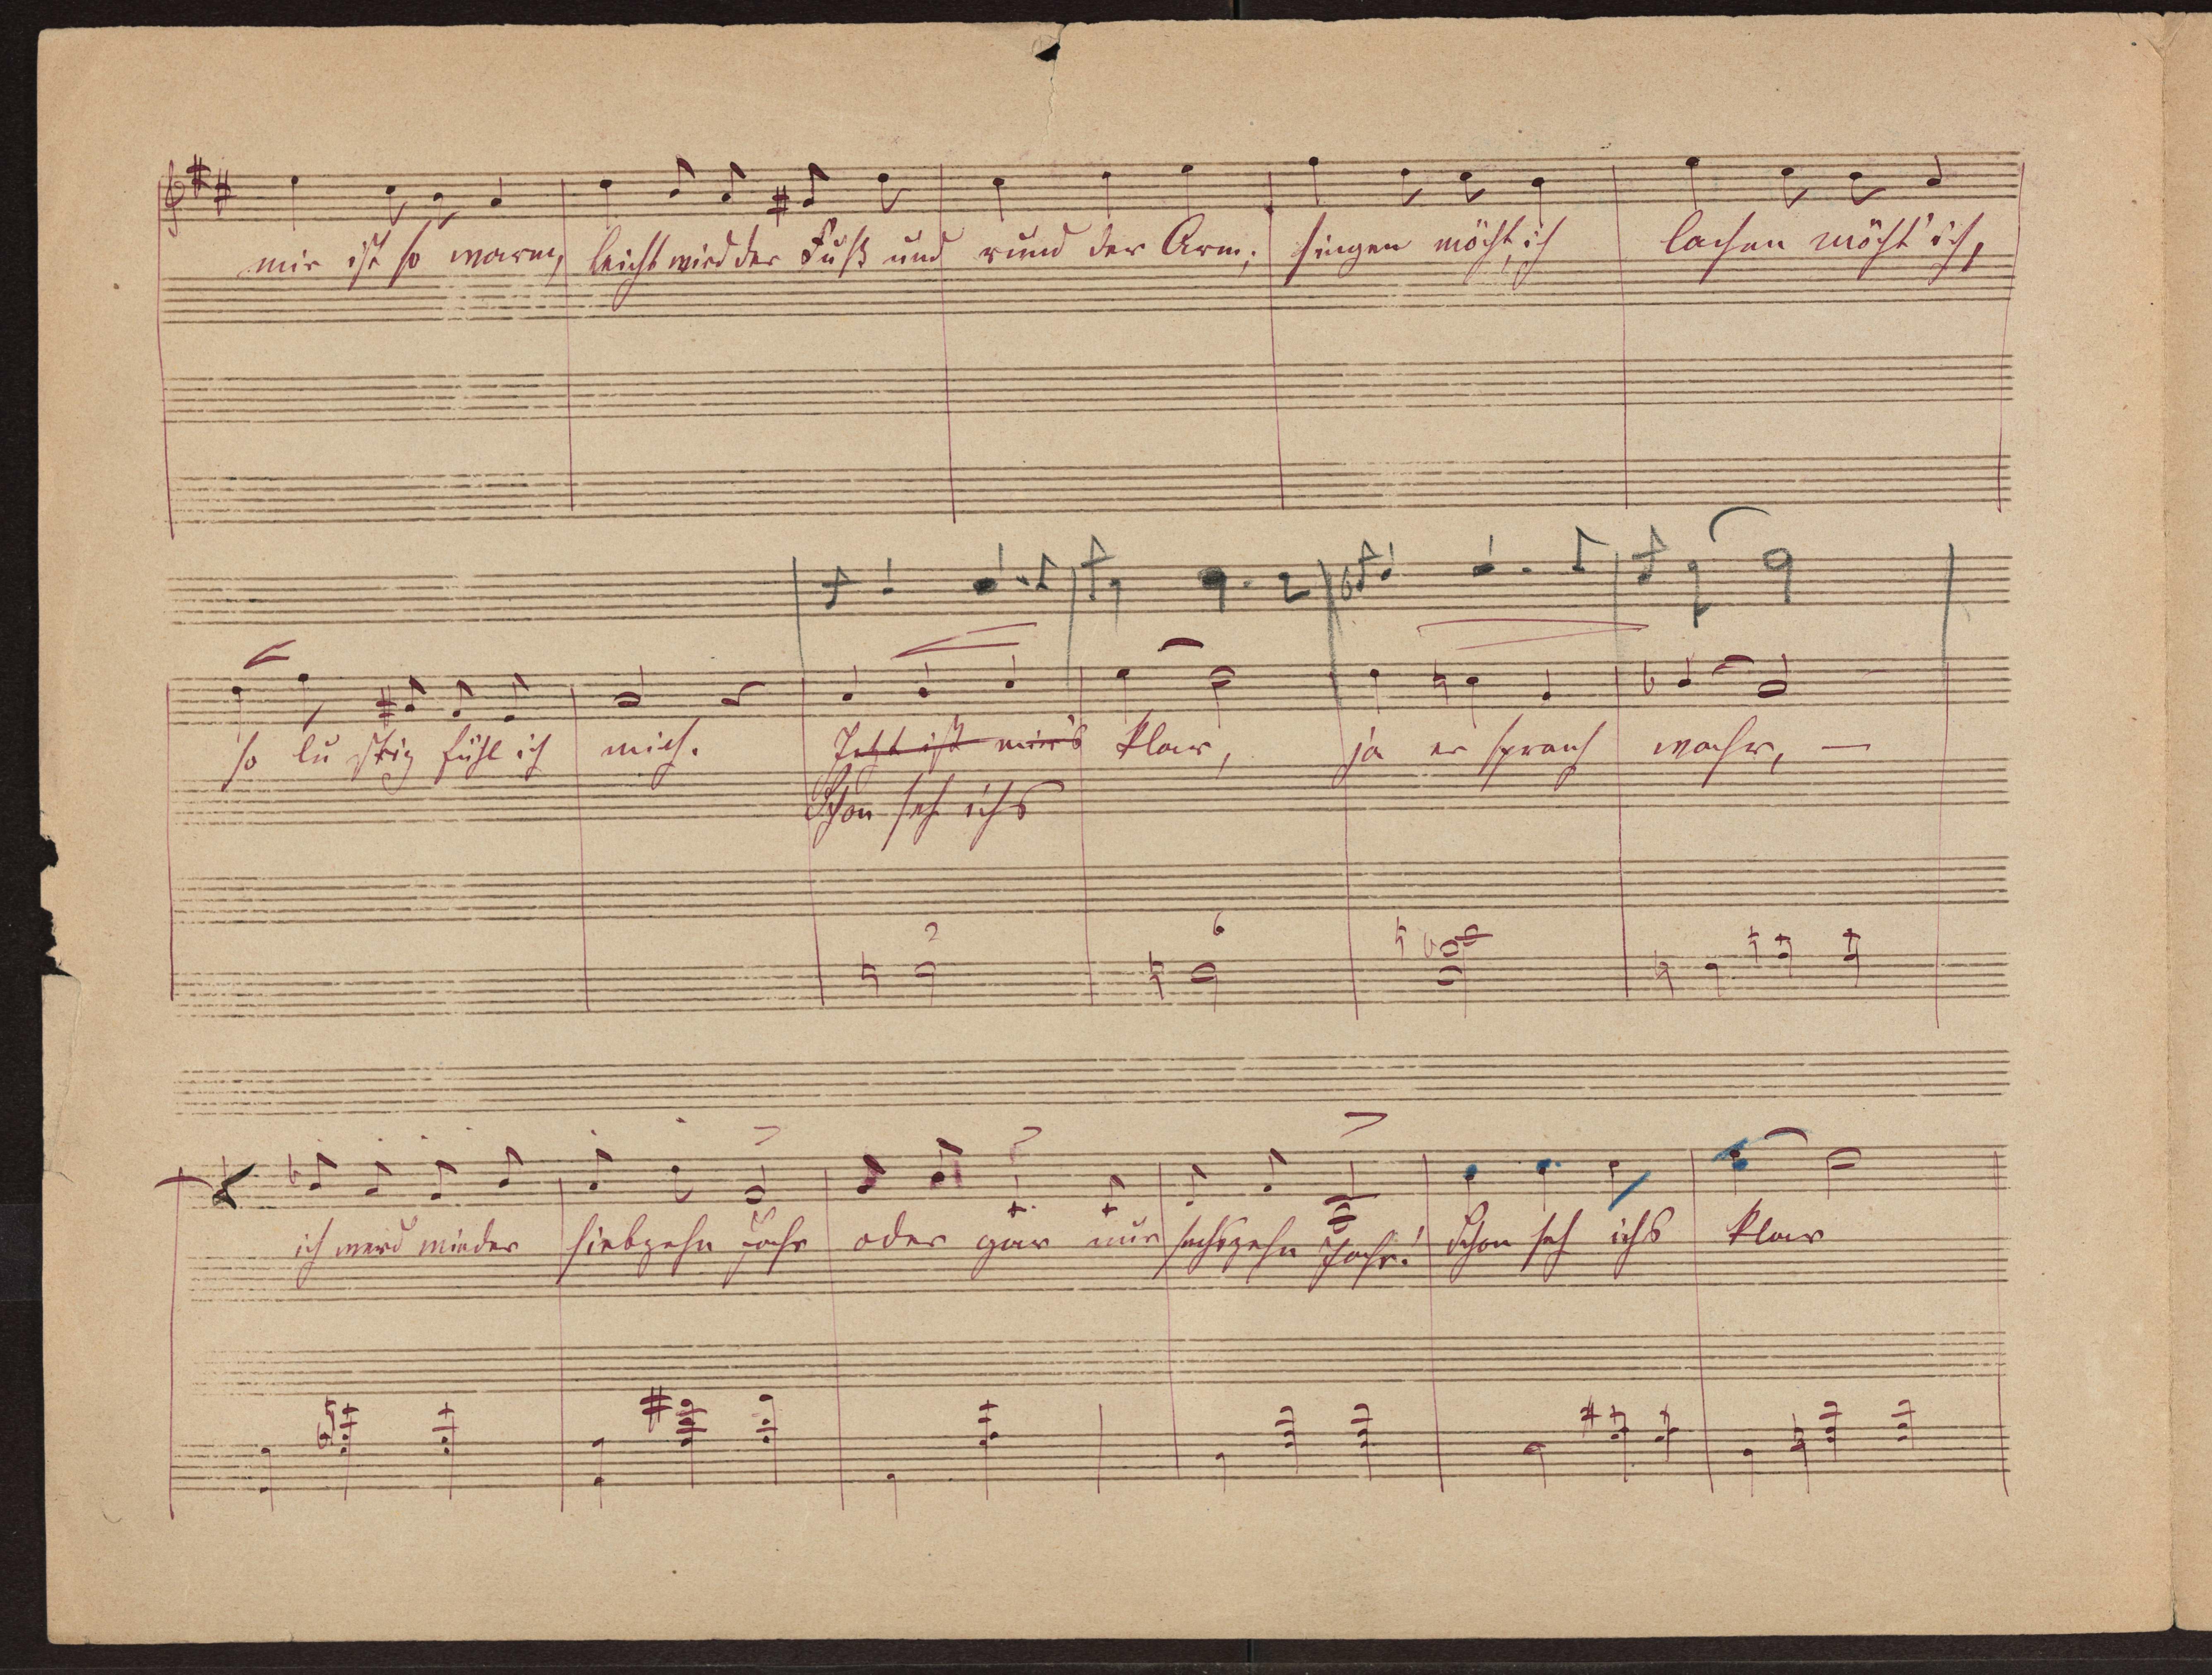 mir ist so warm, leicht wird der Fuß und rund der Arm; singen möcht' ich lachen möcht' ich,
so lu stig fühl ich mich. Jetzt ist mir's klar, ja er sprach wahr, —
Schon seh ichs
2 6
ich werd wieder siebzehn Jahr oder gar nur sechszehn Jahr! Schon seh ichs klar